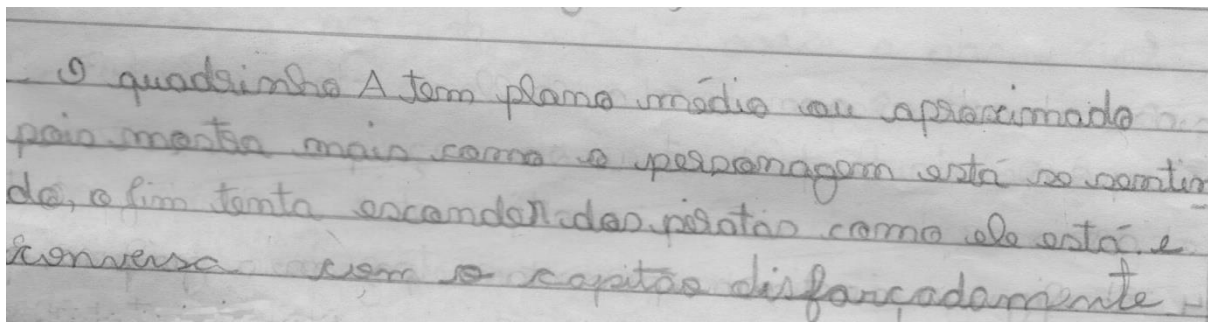 O quadrinho A tem plano médio ou aproximado
pois mostra mais como o personagem está se sentin
do, o Jim tenta esconder dos piratas como ele está e
conversa com o capitão disfarçadamente